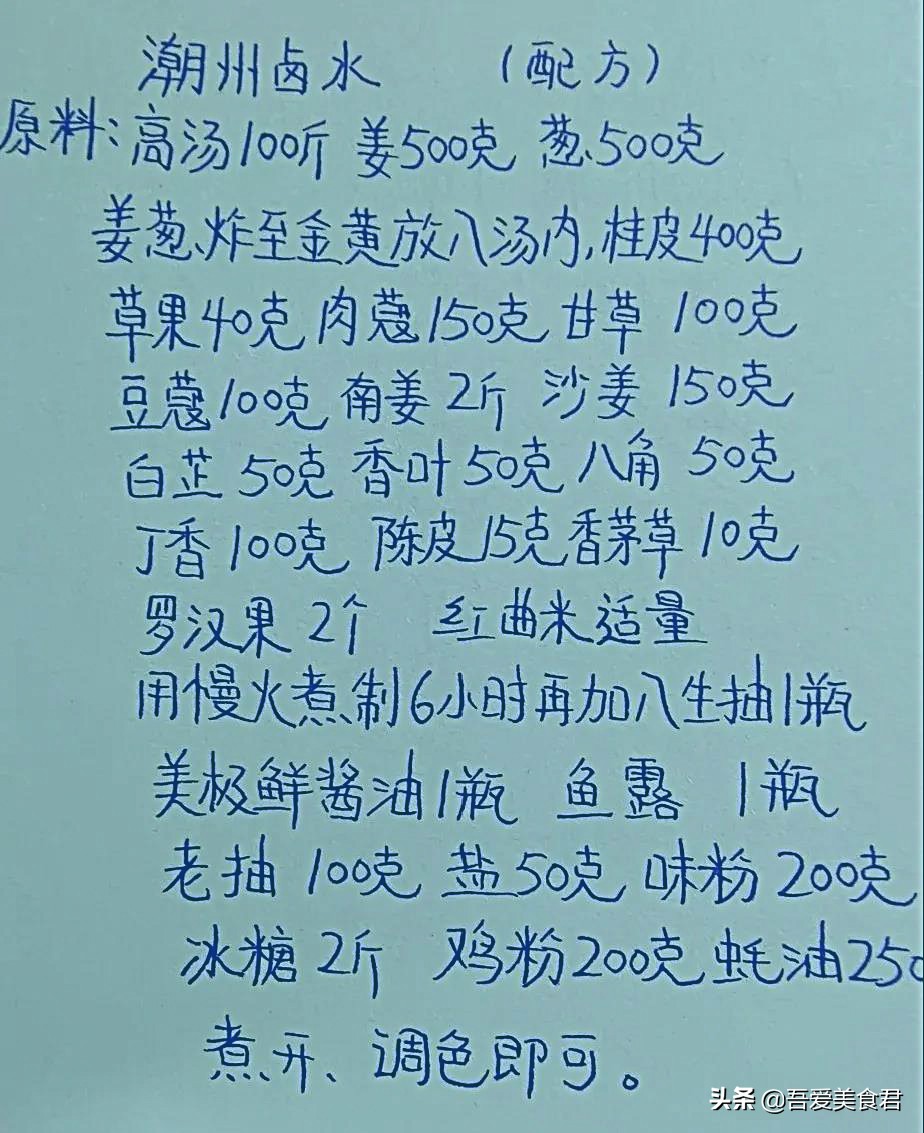 潮州卤水 (配方)
原料:高汤100斤 姜500克 葱500克
姜葱、炸至金黄放入汤内,桂皮400克
草果40克 肉蔻150克 甘草 100克
豆蔻100克 南姜2斤 沙姜 150克
白芷50克 香叶50克 八角 50克
丁香100克 陈皮15克 香茅草10克
罗汉果2个 红曲米适量
用慢火煮制6小时再加入生抽1瓶
美极鲜酱油1瓶 鱼露 1瓶
老抽 100克 盐50克 味粉200克
冰糖2斤 鸡粉200克 蚝油250
煮开、调色即可。
头条 @吾爱美食君